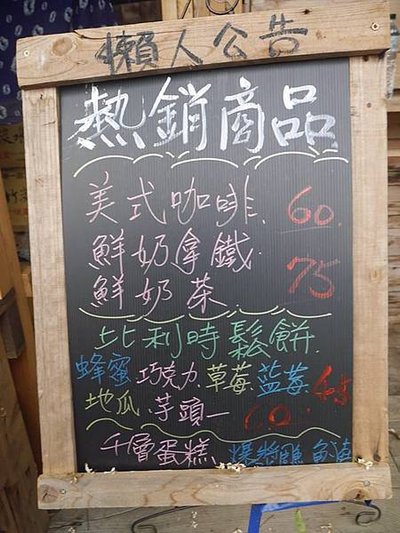 懶人公告
熱銷商品
美式咖啡 60.
鮮奶拿鐵
鮮奶茶 75
比利時鬆餅.
蜂蜜 巧克力 草莓 藍莓 45
地瓜 芋頭一 60.
千層蛋糕、